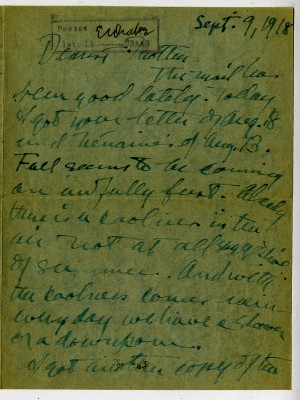 Sept. 9, 1918
Dearest Mother
The mail has
been good lately. Today
I got your letter of Aug. 18
and of Aug. 13.
Fall seems to be coming
on awfully fast. Already
there is a coolness in the
air not at all suggestive
of summer. And with
the coolness comes rain
every day we have a shower
or a downpour.
I got another copy of the